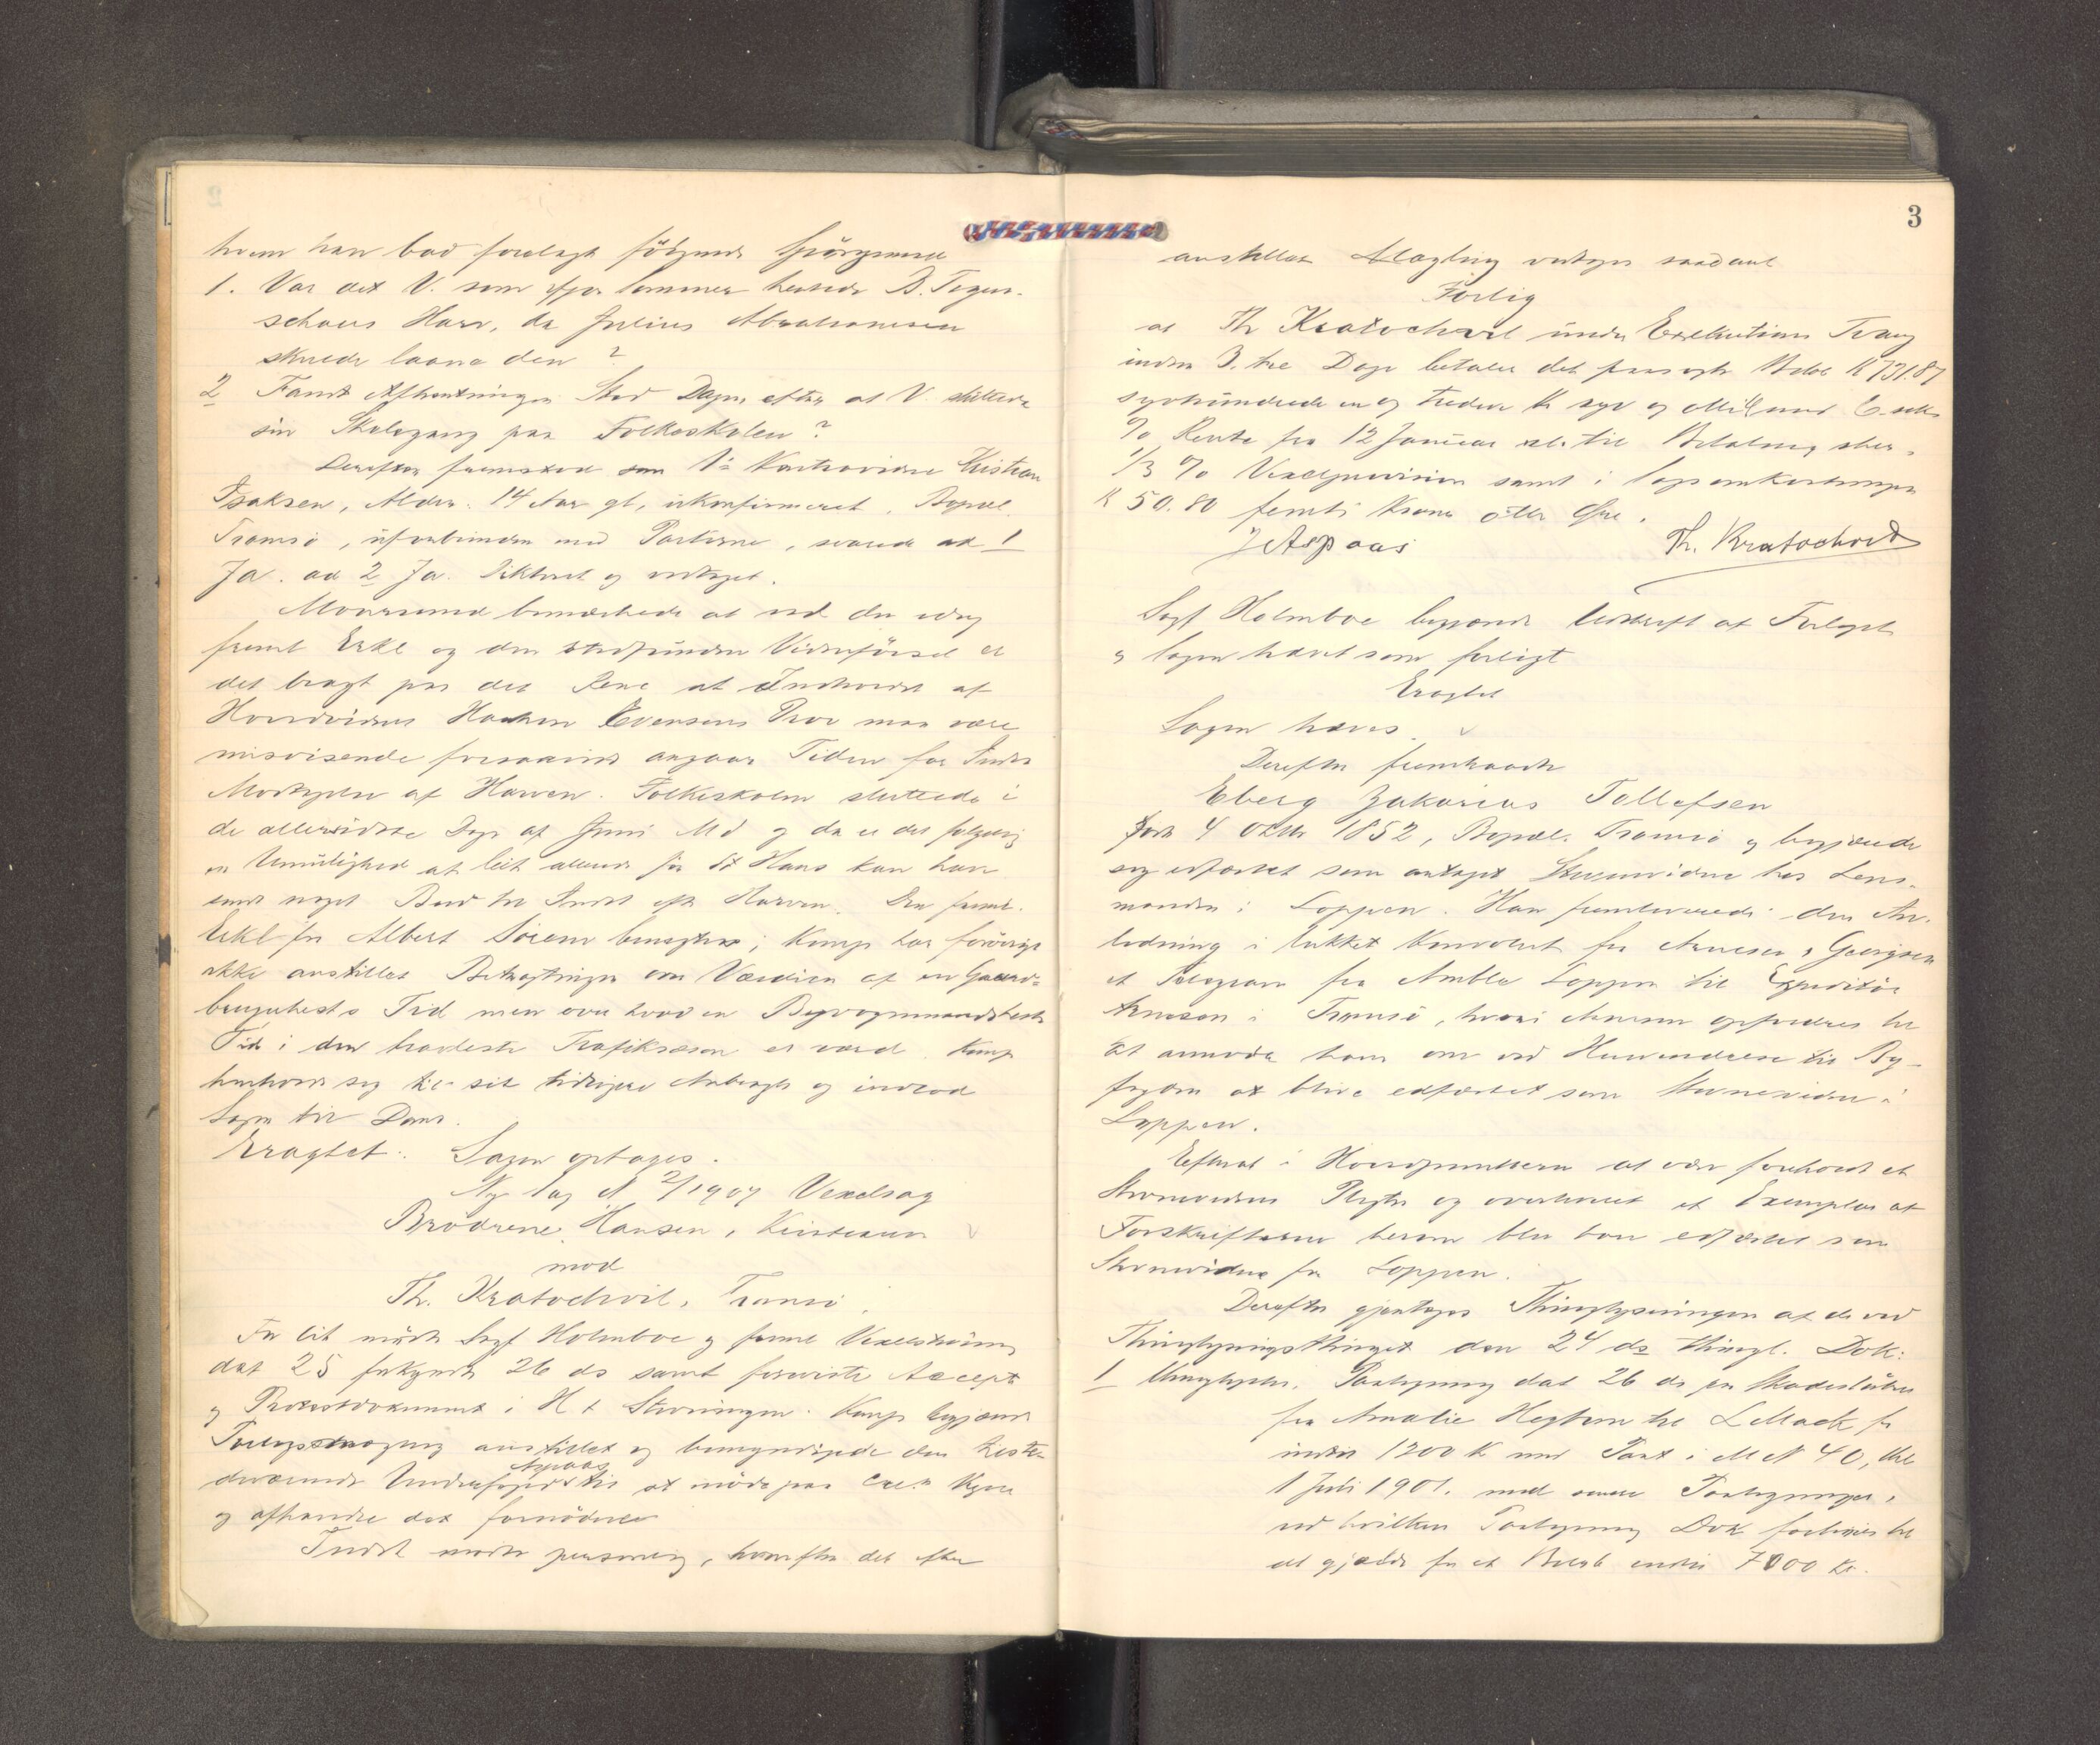 hvem han bad forelagt følgende Spørgsmaal
1. Var det V. som ifjor Sommer hentede B. Tegen-
schous Harv, da Julius Abrahamsen
skulde laane den?
2 Fandt Afhentningen Sted Dagen efter at V. sluttede
sin Skolegang paa Folkeskolen?
Derefter fremstod som 1ste Kontravidne Kristian
Isaksen, Alder: 14 Aar gl, ukonfirmeret, Bopæl
Tromsø, uforbunden med Parterne, svarede ad 1
Ja. ad 2 Ja. Dikteret og vedtaget.
bemærkede at ved den idag
freml Erkl og den stedfundne Vidneførsel er
det bragt paa det Rene at Indholdet af
Hovedvidnet Haakon Evensens Prov maa være
misvisende forsaavidt angaar Tiden for Indst
Modtagelse af Harven. Folkeskolen sluttede i
de allersidste Dage af Juni Md og da er det følgelig
en Umulighed at Cit allerede før St Hans kan have
sendt noget Bud til Indst efter Harven. Den freml.
Erkl fra Albert Sørensen benægtes; Komp har forøvrigt
ikke anstillet Betragtninger om Værdien af en Gaard-
brugerhests Tid men over hvad en Byvognmandshests
Tid i den travleste Trafiksæson er værd. Komp
henholdt sig til sit tidligere Anbragte og indlod
Sagen til Doms.
Eragtet: Sagen optages.
Ny Sag N 2/1907 Vexelsag
Brødrene Hansen, Kristiania
mod
Th. Kratochvil, Tromsø.
For Cit mødte Sagf Holmboe og freml Vexelstævning
dat 25 forkyndt 26 ds samt foreviste Accept
og Protestdokument i H t Stævningen. Komp begjærede
Forligsmægling anstillet og bemyndigede den tilste-
deværende Undersagfører Aspaas til at møde paa Cit.s Vegne
og afhandle det fornødne
Indst mødte personlig, hvorefter det efter
3
anstillet Mægling vedtoges saadant
Forlig
at Th Kratochvil under Exekutions Tvang
inden 3. tre Dage betaler det paasøgte Beløb K 731.87
syvhundrede en og tredive Kr syv og otti Øre med 6. seks
% Rente fra 12 Januar ds til Betaling sker,
1/3 % Vexelprovision samt i Sagsomkostninger
K 50.80 femti Kroner otti Øre.
J Aspaas Th. Kratochvil
Sagf Holmboe begjærede Udskrift af Forliget
og Sagen hævet som forligt
Eragtet
Sagen hæves.
Derefter fremstod
Eberg Zakarias Tollefsen
født 4 Oktbr 1852, Bopæl. Tromsø og begjærede
sig edfæstet som antaget Stævnevidne hos Lens-
manden i Loppen. Han fremleverede i den An-
ledning i lukket Konvolut fra Arnesen & Georgsen
et Telegram fra Ambla Loppen til Expeditør
Arnesen i Tromsø, hvori Arnesen opfordres til
at anmode ham om ved Henvendelse til By-
fogden at blive edfæstet som Stævnevidne i
Loppen.
Efterat i Hovedpunkterne at være foreholdt et
Stævnevidnes Pligter og overleveret et Exemplar af
Forskrifterne herom blev han edfæstet som
Stævnevidne for Loppen.
Derefter gjentoges Thinglysningen af de ved
Thinglysningsthinget den 24 ds thingl. Dok:
1 thinglystes. Paategning dat 26 ds paa Skadesløsbrev
fra Amalie Hegtun til L Mack for
indtil 1200 K med Pant i M N 40, thl
1 Juli 1901. med senere Paategninger,
ved hvilken Paategning Dok forhøies til
at gjælde for et Beløb indtil 7000 Kr.